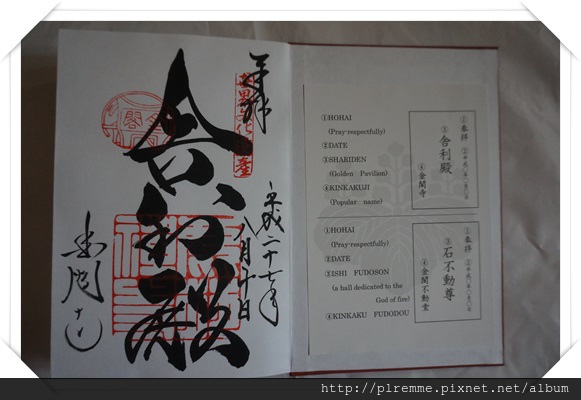 奉拝
平成二十七年
八月廿日
舎利殿
①HOHAI
(Pray respectfully)
②DATE
③SHARIDEN
(Golden Pavilion)
④KINKAKUJI
(Popular name)
①奉拝
③舎利殿
④金閣寺
①HOHAI
(Pray respectfully)
②DATE
③ISHI FUDOSON
(a hall dedicated to the
God of fire)
④KINKAKU FUDODOU
①奉拝
③石不動尊
④金閣不動堂
http://plremme.pixnet.net/album